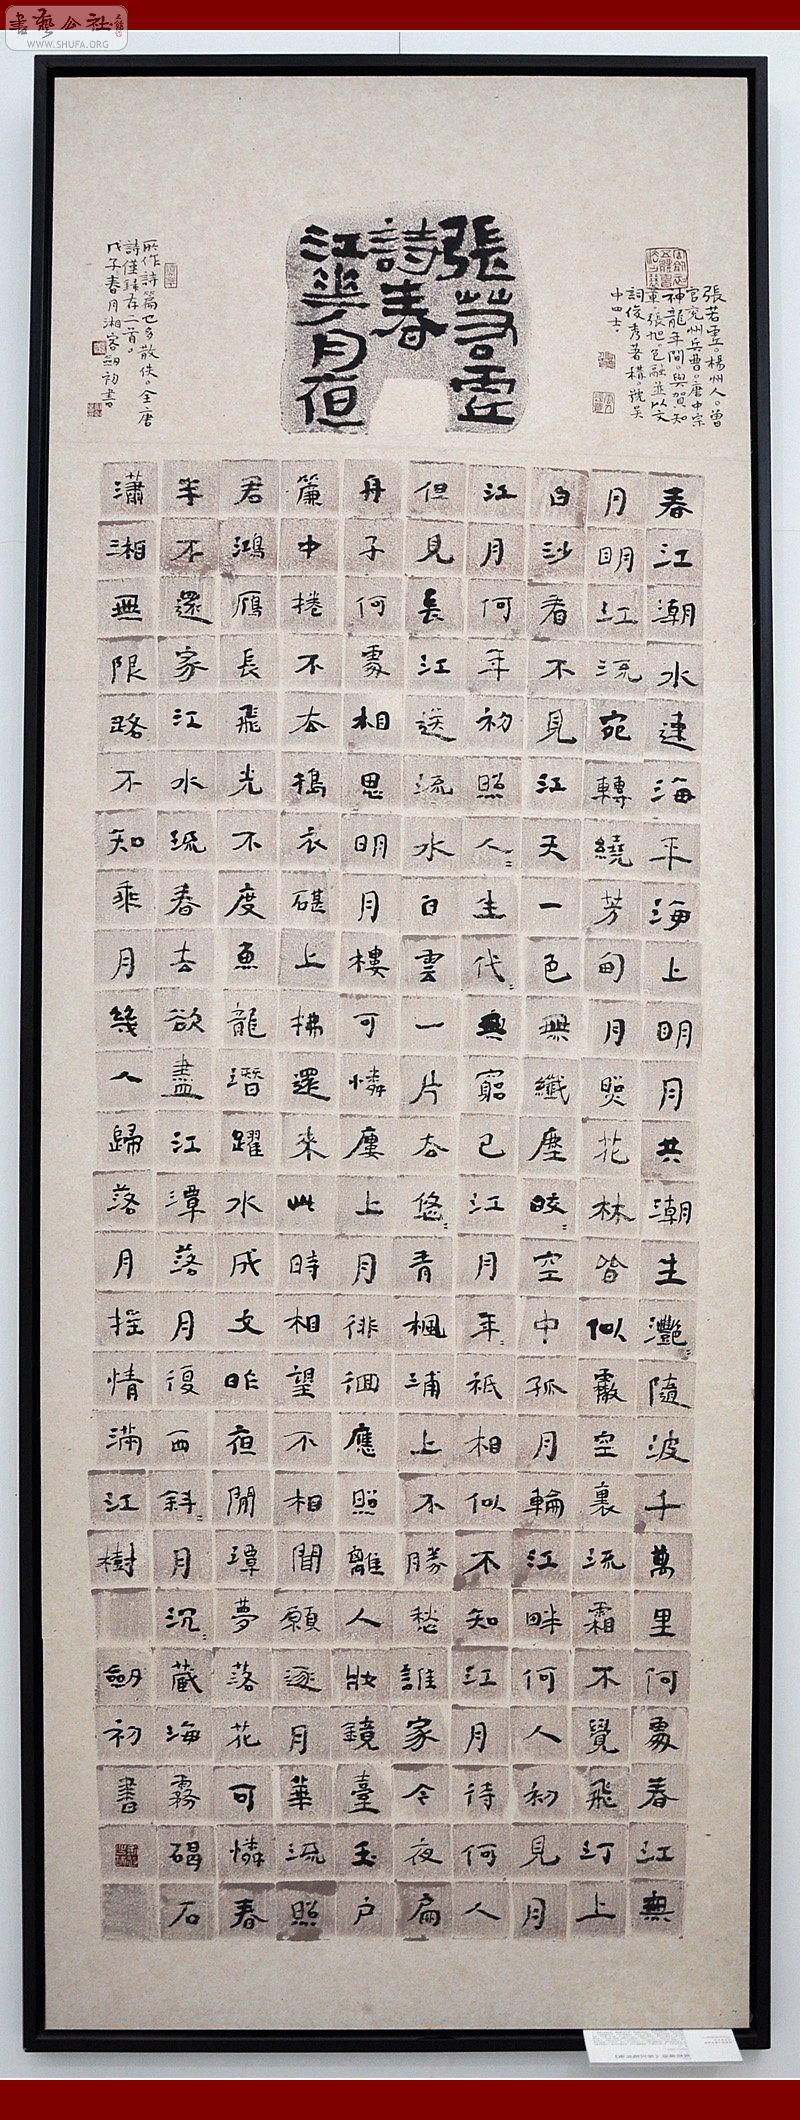 書藝公社
WWW.SHUFA.ORG
張若虛
詩春
江華月夜
張若虛。楊州人。曾
官兗州兵曹。唐中宗
神龍年間。與賀知
章張旭。包融並以文
詞俊秀著稱。號吳
中四士。
春江潮水連海平海上明月共潮生灩〻隨波千萬里何處春江無
月明江流宛轉繞芳甸月照花林皆似霰空裏流霜不覺飛汀上
白沙看不見江天一色無纖塵皎〻空中孤月輪江畔何人初見月
江月何年初照人〻生代〻無窮已江月年〻祇相似不知江月待何人
但見長江送流水白雲一片去悠〻青楓浦上不勝愁誰家今夜扁
舟子何處相思明月樓可憐廔上月徘徊應照離人妝鏡臺玉户
簾中捲不去擣衣碪上拂還來此時相望不相聞願逐月華流照
君鴻雁長飛光不度魚龍潛躍水成文昨夜閒潭夢落花可憐春
半不還家江水流春去欲盡江潭落月復西斜〻月沉〻藏海霧碣石
瀟湘無限路不知乘月幾人歸落月搖情滿江樹 劍初書
所作詩篇也多散佚。全唐
詩僅錄存二首。
戊子春月湘客劍初書